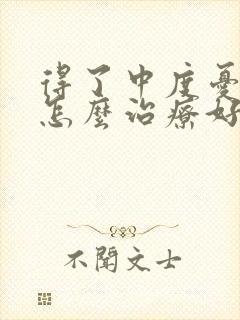 得了中度憂
怎麼治療好
不聞文士